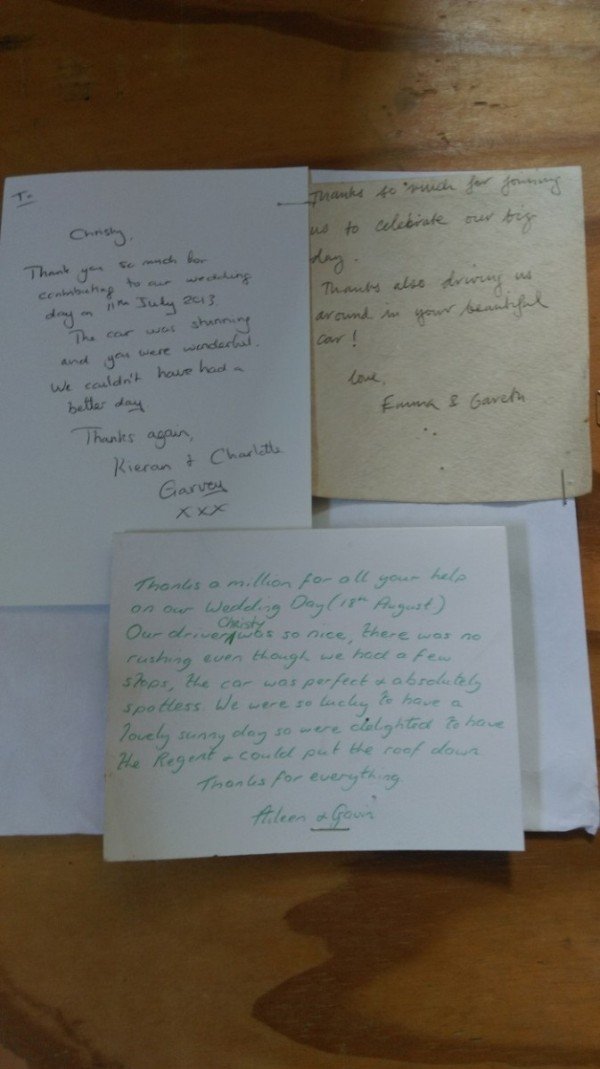 To
Christy,
Thank you so much for
contributing to our wedding
day on 11th July 2013
The car was stunning
and you were wonderful.
We couldn't have had a
better day
Thanks again,
Kieran & Charlotte
Garvey
xxx
Thanks so much for joining
us to celebrate our big
day.
Thanks also driving us
around in your beautiful
car!
love,
Emma & Gareth
Thanks a million for all your help
on our Wedding Day (18th August)
Our driver Christy was so nice, there was no
rushing even though we had a few
stops, the car was perfect & absolutely
spotless. We were so lucky to have a
lovely sunny day so were delighted to have
the Regent & could put the roof down
Thanks for everything
Aileen & Gavin